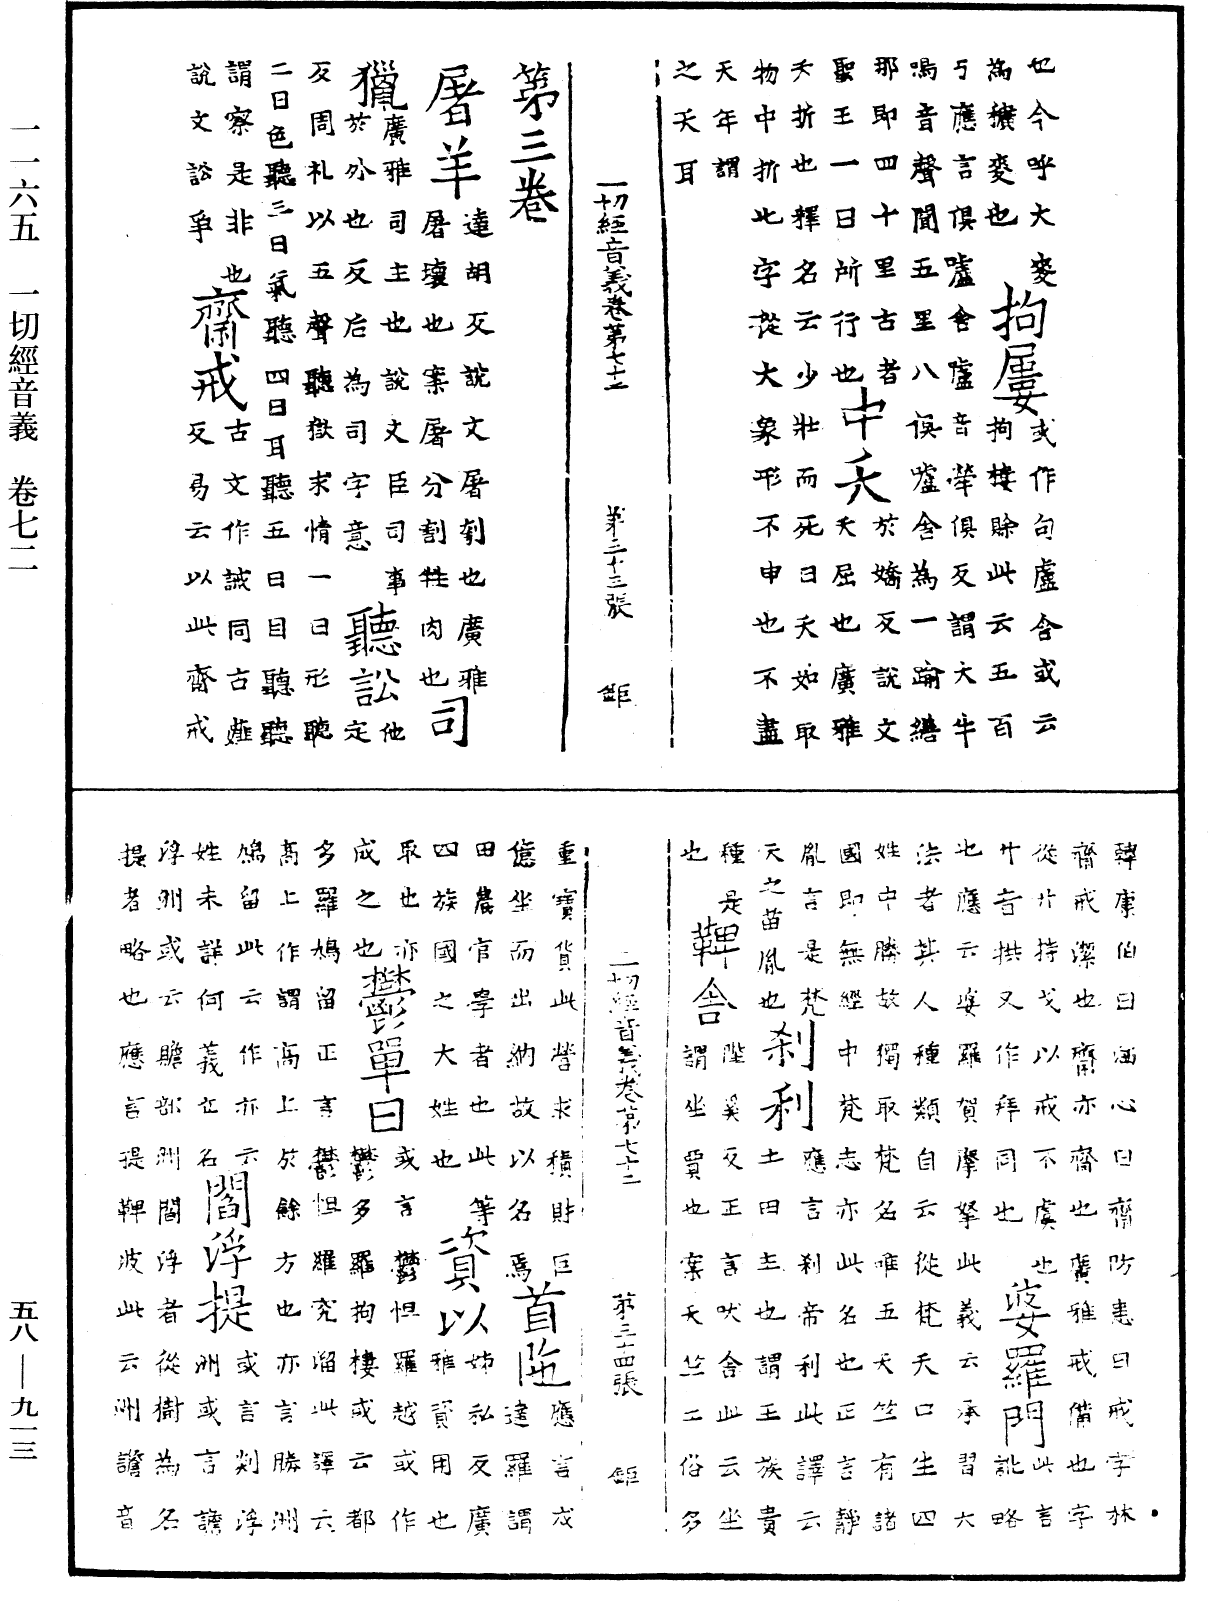 一一六五　一切經音義　卷七二
五八—九一三
也今呼大麥
為穬麥也　拘屢 拘樓賒此云五百
弓應言俱嚧舍嚧音犖俱反謂大牛
嗚音聲聞五里八俱嚧舍為一踰繕
那即四十里古者　於嬌反說文
聖王一日所行也　中夭 夭屈也廣雅
夭折也釋名云少壯而死曰夭如取
物中折此字從大象形不申也不盡
天年謂
之夭耳
或作句盧舍或云
一切經音義卷第七十二　第三十三張　鉅
第三卷
屠羊 達胡反說文屠刳也廣雅
屠壞也案屠分割牲肉也　司
獵 廣雅司主也說文臣司事
於外也反后為司字意　聽訟 他定
反周礼以五聲聽獄求情一曰形聽
二曰色聽三曰氣聽四曰耳聽五曰目聽聽
謂察是非也
說文訟爭　齋戒 古文作誡同古薤
反易云以此齋戒
韓康伯曰洒心曰齋防患曰戒字林
齋戒潔也齋亦齋也廣雅戒備也字
從廾持戈以戒不虞也
廾音拱又作拜同也　婆羅門 此言訛略
也應云婆羅賀摩拏此義云承習大
法者其人種類自云從梵天口生四
姓中勝故獨取梵名唯五天竺有諸
國即無經中梵志亦此名也正言靜
胤言是梵
天之苗胤也　剎利 應言剎帝利此譯云
土田主也謂王族貴
種是
也　鞞舍 陛奚反正言吠舍此云坐
謂坐賈也案天竺二俗多
一切經音義卷第七十二　第三十四張　鉅
重寶貨此營求積財巨
億坐而出納故以名焉　首陁 應言戍達羅謂
田農官學者也此等
四族國之大姓也　資以 姊私反廣雅資用也
取也亦
成之也　鬱單曰 或言鬱怛羅越或作
鬱多羅拘樓或云都
多羅鳩留正言鬱怛羅究溜此譯云
高上作謂高上於餘方也亦言勝洲
鳩留此云作亦云
姓未詳何義立名　閻浮提 或言剡浮洲或言譫
浮洲或云贍部洲閻浮者從樹為名
提者略也應言提鞞波此云洲譫音